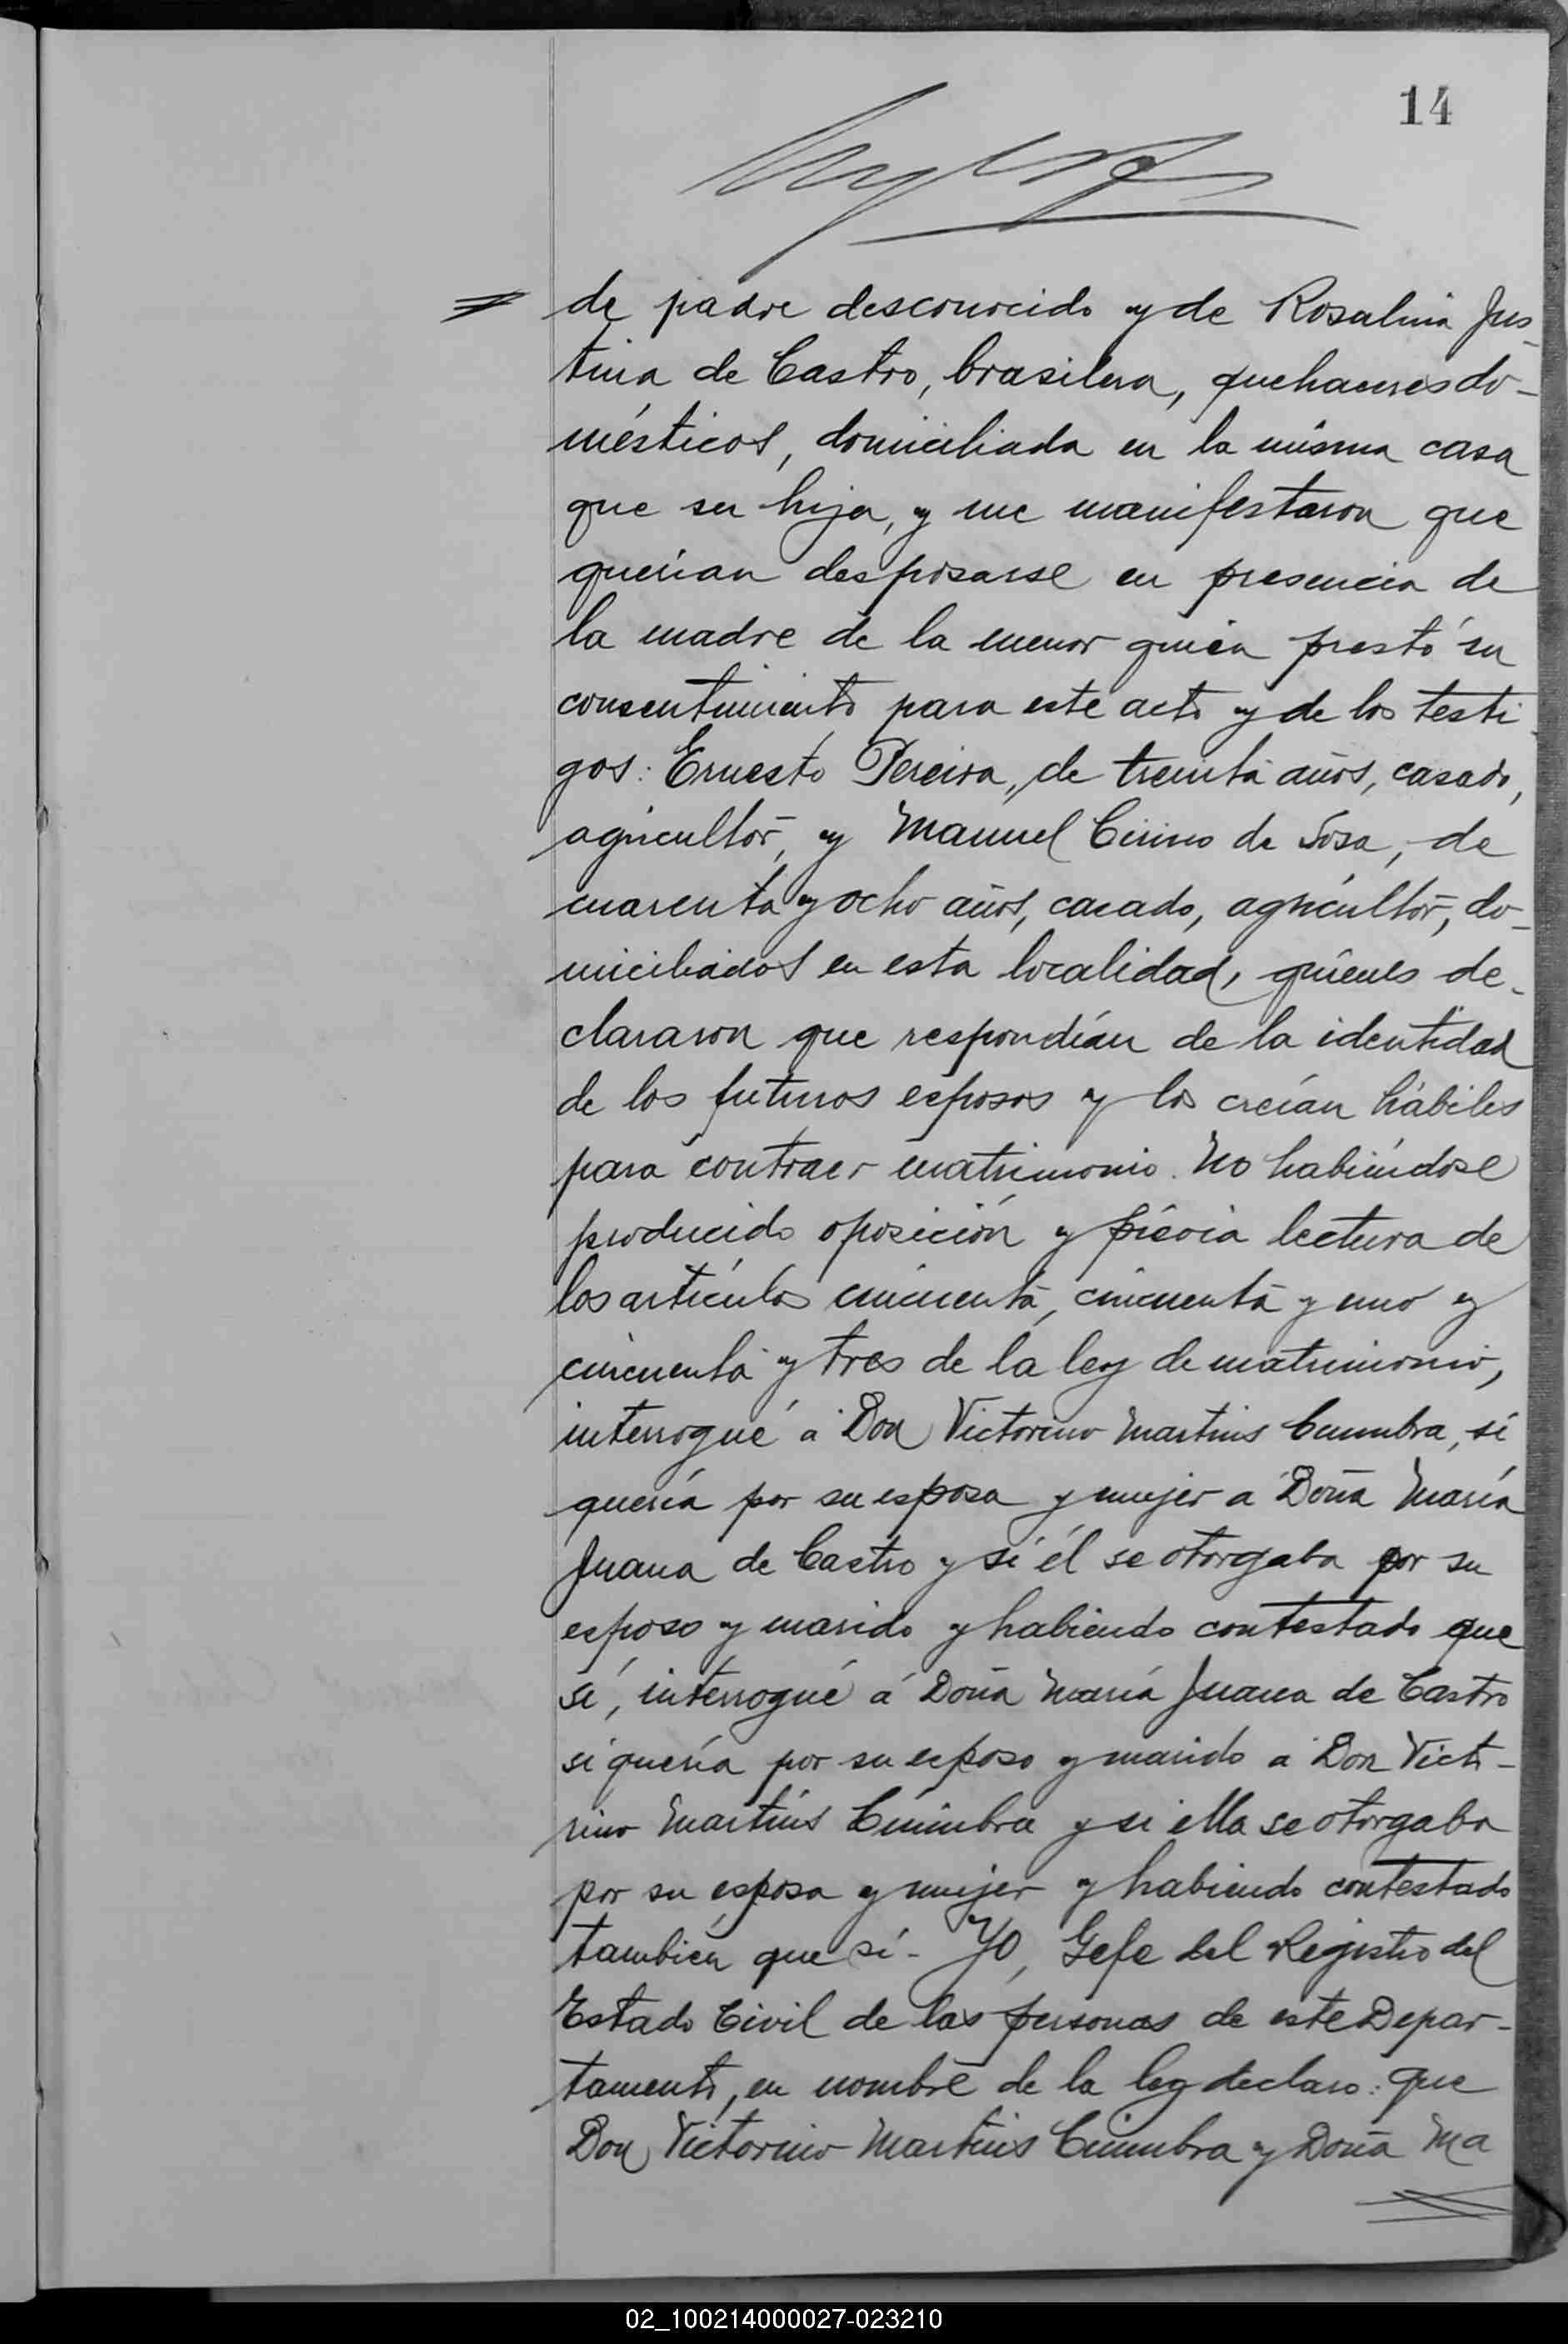 14
de padre desconocido y de Rosalina Jus-
tina de Castro, brasilera, quehaceres do-
mésticos, domiciliada en la misma casa
que su hija, y me manifestaron que
querían desposarse en presencia de
la madre de la menor quien prestó su
consentimiento para este acto y de los testi-
gos: Ernesto Pereira, de treinta años, casado,
agricultor, y Manuel Cirino de Sosa, de
cuarenta y ocho años, casado, agricultor, do-
miciliados en esta localidad, quienes de-
clararon que respondían de la identidad
de los futuros esposos y los creían hábiles
para contraer matrimonio. No habiéndose
producido oposición y prévia lectura de
los artículos cincuenta, cincuenta y uno y
cincuenta y tres de la ley de matrimonio,
interrogué á Don Victorino Martins Cuimbra, si
quería por su esposa y mujer a Doña María
Juana de Castro y si él se otorgaba por su
esposo y marido y habiendo contestado que
sí, interrogué á Doña María Juana de Castro
si quería por su esposo y marido a Don Victo-
rino Martins Cuimbra y si ella se otorgaba
por su esposa y mujer y habiendo contestado
también que sí - Yo, Gefe del Registro del
Estado Civil de las personas de este Depar-
tamento, en nombre de la ley declaro: que
Don Victorino Martins Cuimbra y Doña Ma
02_100214000027-023210